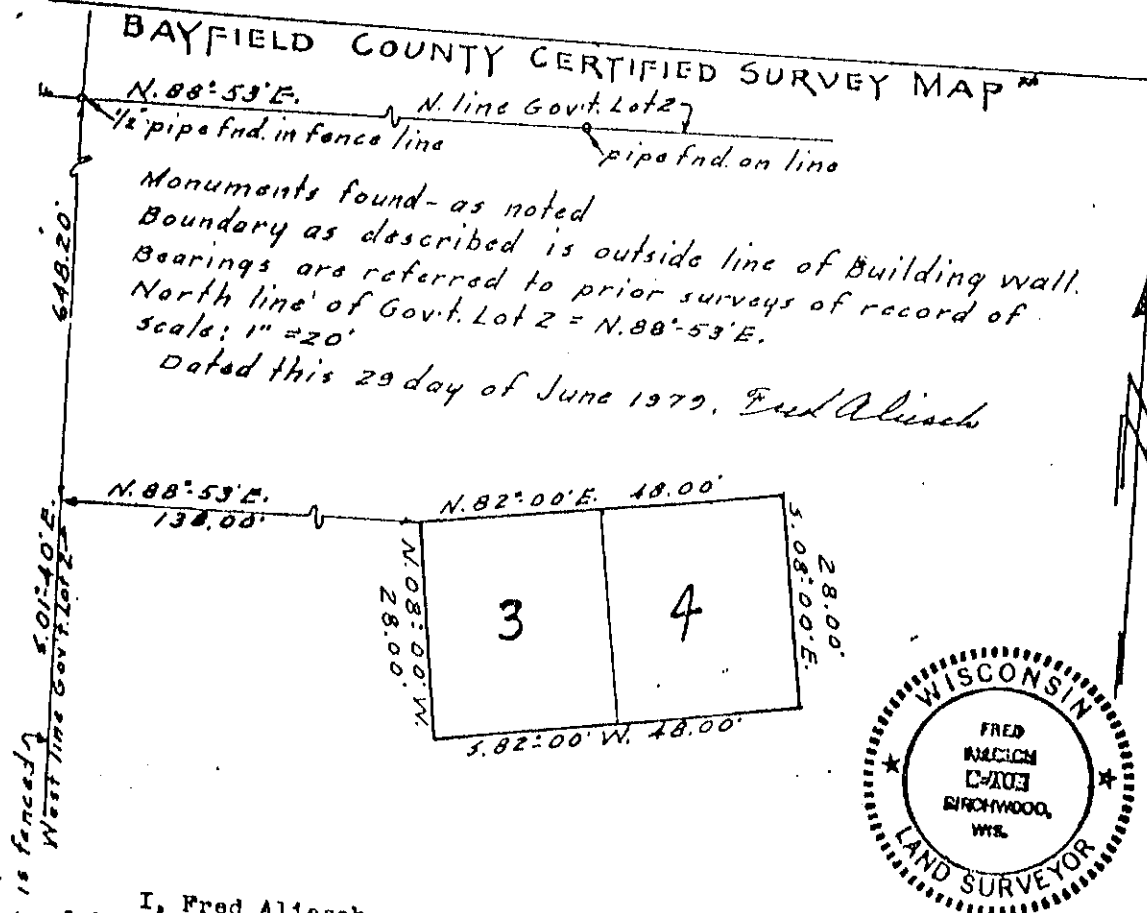 BAYFIELD COUNTY CERTIFIED SURVEY MAP
N. 88°-53'E.
N. line Gov't. Lot 2
1/2" pipe fnd. in fence line
pipe fnd. on line
Monuments found - as noted
Boundary as described is outside line of Building wall.
Bearings are referred to prior surveys of record of
North line of Gov't. Lot 2 = N. 88°-53'E.
scale: 1" = 20'
Dated this 29 day of June 1979. Fred Aliesch
648.20'
S. 01°-40'E.
West line Gov't. Lot 2
is fenced
N. 88°-53'E.
N. 82°-00'E. 48.00'
N. 08°-00'W.
28.00'
3
4
S. 08°-00'E.
28.00'
S. 82°-00' W. 48.00'
WISCONSIN
FRED
BIRCHWOOD,
WIS.
LAND SURVEYOR
I, Fred Aliesch